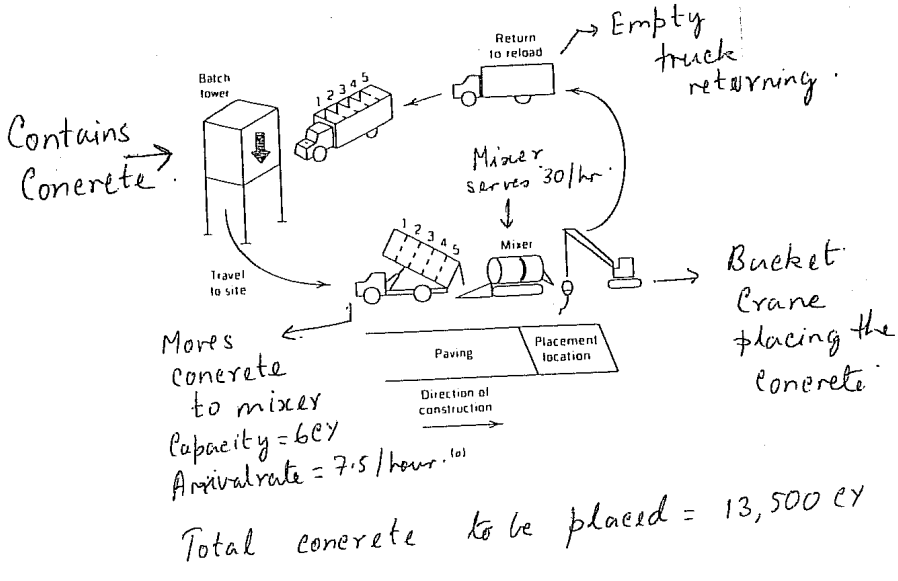 Return
to reload
Empty
truck
returning.
Batch
tower
1 2 3 4 5
Contains
Concrete.
Mixer
serves 30/hr.
1 2 3 4 5
Mixer
Travel
to site
Bucket
Crane
placing the
concrete
Moves
concrete
to mixer
Capacity = 6CY
Arrival rate = 7.5/hour. (a)
Paving
Placement
location
Direction of
construction
Total concrete to be placed = 13,500 CY